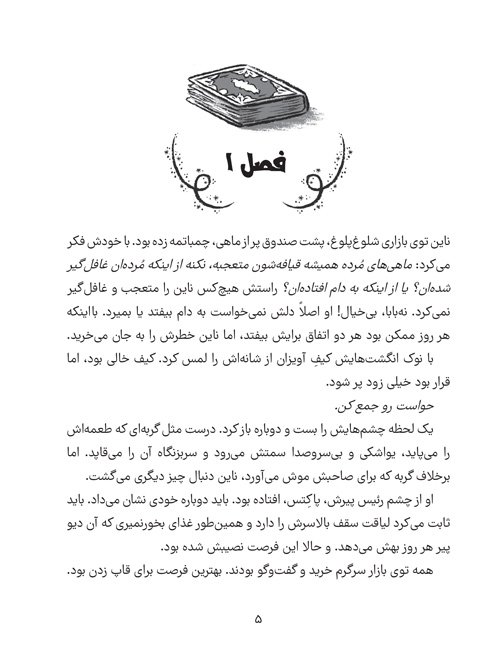 فصل ۱
ناین توی بازاری شلوغ‌پلوغ، پشت صندوق پر از ماهی، چمباتمه زده بود. با خودش فکر
می‌کرد: ماهی‌های مُرده همیشه قیافه‌شون متعجبه، نکنه از اینکه مُرده‌ان غافل‌گیر
شده‌ان؟ یا از اینکه به دام افتاده‌ان؟ راستش هیچ‌کس ناین را متعجب و غافل‌گیر
نمی‌کرد. نه‌بابا، بی‌خیال! او اصلاً دلش نمی‌خواست به دام بیفتد یا بمیرد. بااینکه
هر روز ممکن بود هر دو اتفاق برایش بیفتد، اما ناین خطرش را به جان می‌خرید.
با نوک انگشت‌هایش کیفِ آویزان از شانه‌اش را لمس کرد. کیف خالی بود، اما
قرار بود خیلی زود پر شود.
حواست رو جمع کن.
یک لحظه چشم‌هایش را بست و دوباره باز کرد. درست مثل گربه‌ای که طعمه‌اش
را می‌پاید، یواشکی و بی‌سروصدا سمتش می‌رود و سربزنگاه آن را می‌قاپد. اما
برخلاف گربه که برای صاحبش موش می‌آورد، ناین دنبال چیز دیگری می‌گشت.
او از چشم رئیس پیرش، پاکِتس، افتاده بود. باید دوباره خودی نشان می‌داد. باید
ثابت می‌کرد لیاقت سقف بالاسرش را دارد و همین‌طور غذای بخورنمیری که آن دیو
پیر هر روز بهش می‌دهد. و حالا این فرصت نصیبش شده بود.
همه توی بازار سرگرم خرید و گفت‌وگو بودند. بهترین فرصت برای قاپ زدن بود.
۵